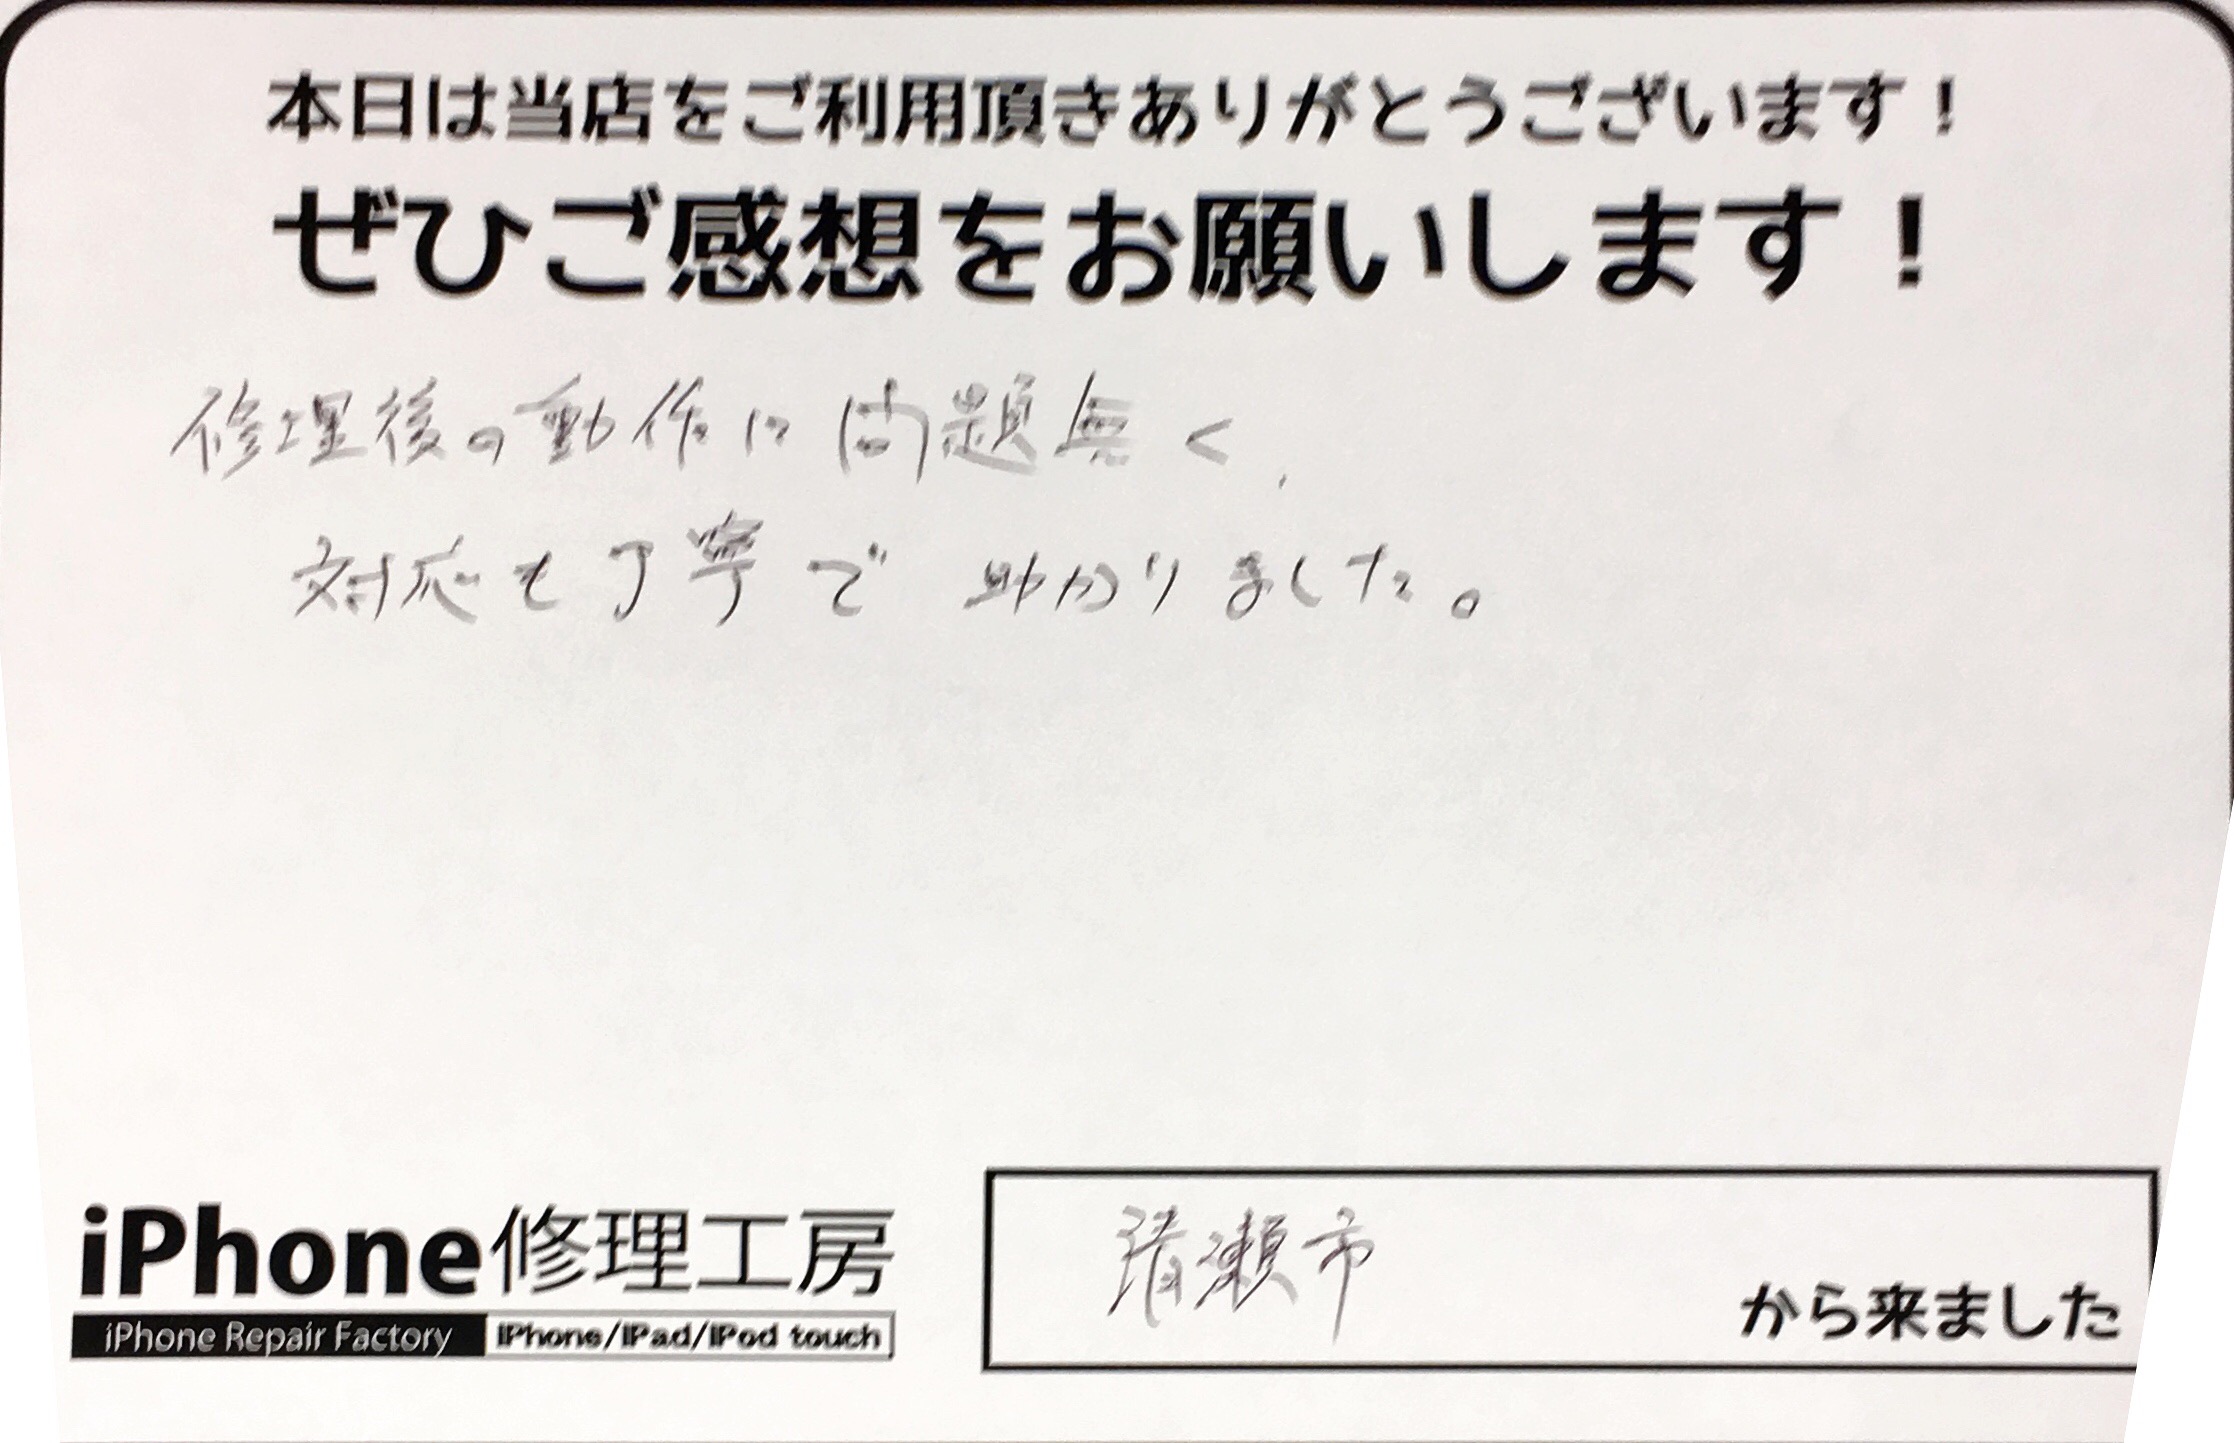 本日は当店をご利用頂きありがとうございます！
ぜひご感想をお願いします！
修理後の動作に問題無く、
対応も丁寧で 助かりました。
iPhone修理工房
iPhone Repair Factory iPhone/iPad/iPod touch
清瀬市
から来ました